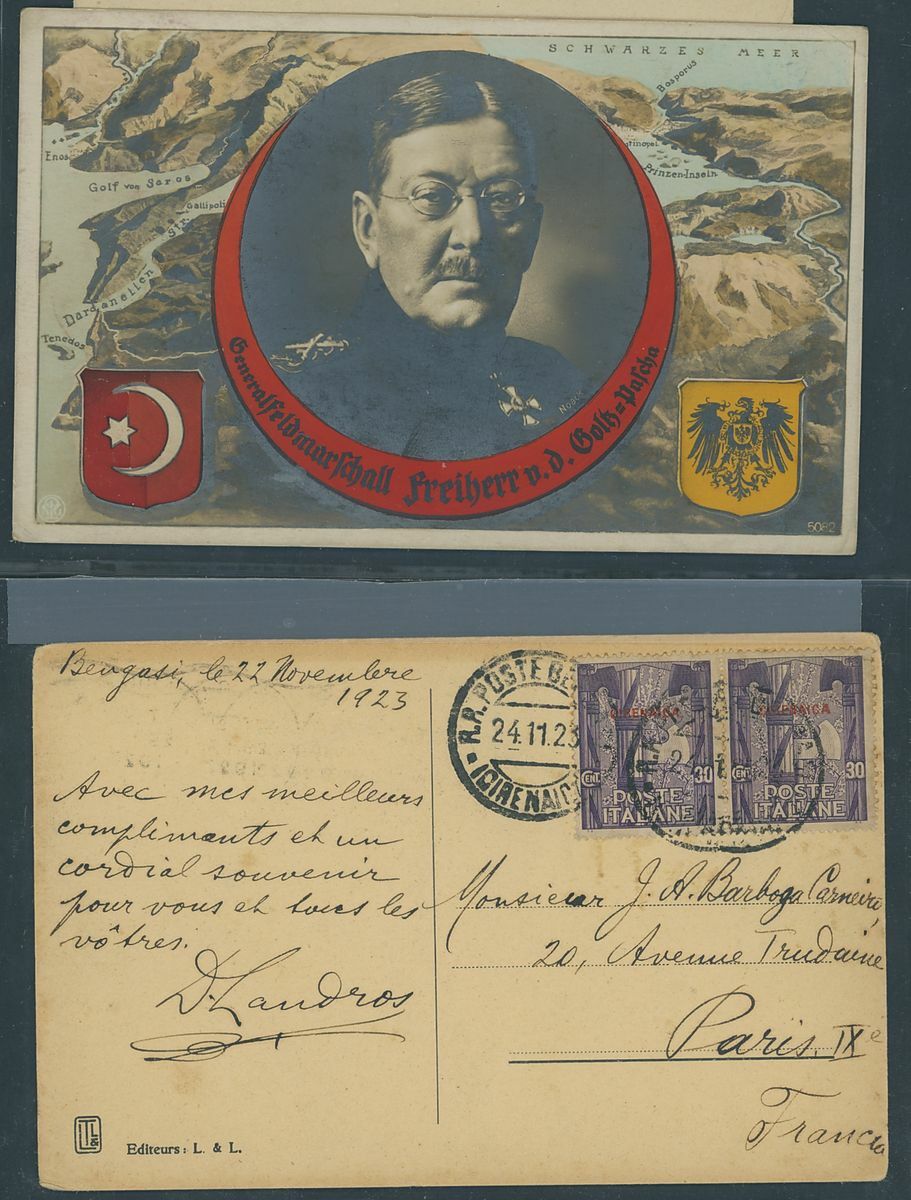 SCHWARZES MEER
Bosporus
Enos
Golf von Saros
Gallipoli
Prinzen-Inseln
Dardanellen Str.
Tenedos
Generalfeldmarschall Freiherr v. d. Goltz=Pascha
5082
Bengasi, le 22 Novembre
1923
R.R. POSTE BE
24.11.23
(CIRENAIC
CIRENAICA
CIRENAICA
CENT. 30
CENT. 30
POSTE
ITALIANE
POSTE
ITALIANE
Avec mes meilleurs
complimants et un
cordial souvenir
pour vous et tous les
vôtres.
D. Landros
Monsieur J. A. Barboza Carneiro,
20, Avenue Trudaine
Paris, IXe
Francia
Editeurs: L. & L.